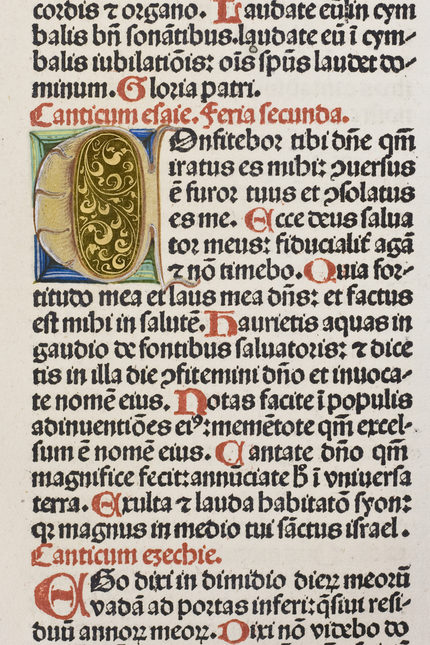 cordis ⁊ organo. Laudate eũ in cym
balis bñ sonãtibus. laudate eũ ĩ cym-
balis iubilatiõis: oĩs spũs laudet do-
minum. Gloria patri.
Canticum esaie. Feria secunda.
COnfitebor tibi dñe qm̃
iratus es mihi: ꝯuersus
ẽ furor tuus et ꝯsolatus
es me. Ecce deus salua
tor meus: fiducialiť agã
⁊ nõ timebo. Quia for-
titudo mea et laus mea dñs: et factus
est mihi in salutẽ. Haurietis aquas in
gaudio de fontibus saluatoris: ⁊ dice
tis in illa die ꝯfitemini dño et inuoca-
te nomẽ eius. Notas facite ĩ populis
adinuentiões eiꝰ: memẽtote qm̃ excel-
sum ẽ nomẽ eius. Cantate dño qm̃
magnifice fecit: annũciate ħ ĩ vniuersa
terra. Exulta ⁊ lauda habitatõ syon:
qꝛ magnus in medio tui sãctus israel.
Canticum ezechie.
EGo dixi in dimidio dieꝝ meorũ
vadã ad portas inferi: q̃siui resi-
duũ annoꝝ meoꝝ. Dixi nõ videbo do